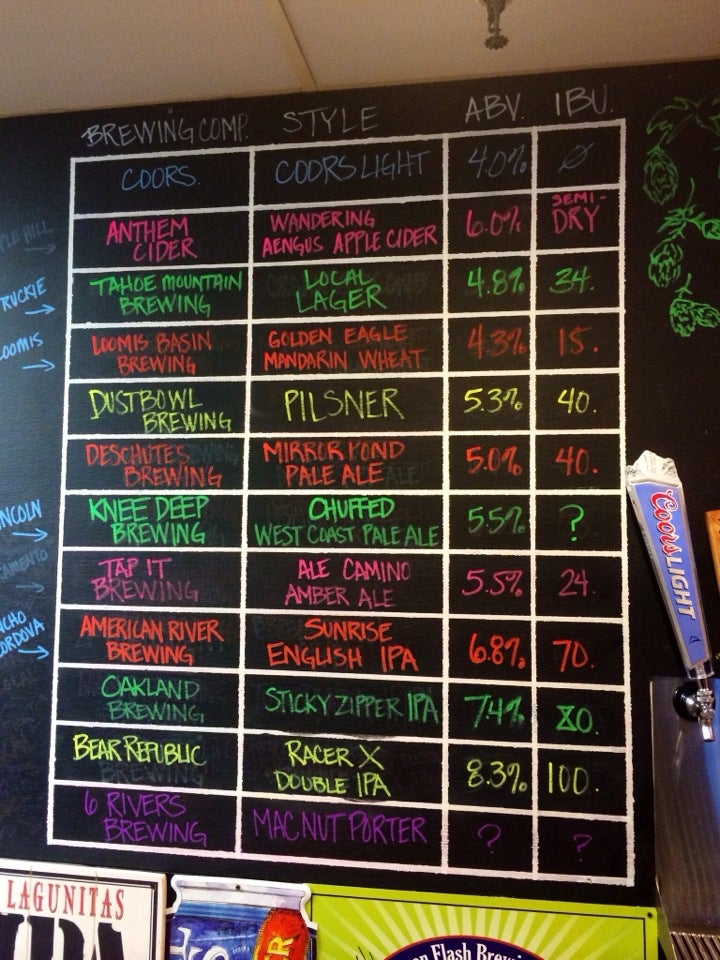 BREWING COMP. STYLE ABV. IBU.
COORS. COORS LIGHT 4.0% Ø
ANTHEM CIDER WANDERING AENGUS APPLE CIDER 6.0% SEMI-DRY
TAHOE MOUNTAIN BREWING LOCAL LAGER 4.8% 34.
LOOMIS BASIN BREWING GOLDEN EAGLE MANDARIN WHEAT 4.3% 15.
DUSTBOWL BREWING PILSNER 5.3% 40.
DESCHUTES BREWING MIRROR POND PALE ALE 5.0% 40.
KNEE DEEP BREWING CHUFFED WEST COAST PALE ALE 5.5% ?
TAP IT BREWING ALE CAMINO AMBER ALE 5.5% 24.
AMERICAN RIVER BREWING SUNRISE ENGLISH IPA 6.8% 70.
OAKLAND BREWING STICKY ZIPPER IPA 7.4% 80.
BEAR REPUBLIC RACER X DOUBLE IPA 8.3% 100.
6 RIVERS BREWING MAC NUT PORTER ? ?
PLE HILL
RUCKIE
LOOMIS
NCOLN
AMENTO
NCHO
CORDOVA
Coors LIGHT
LAGUNITAS
IPA
Flash Brewi